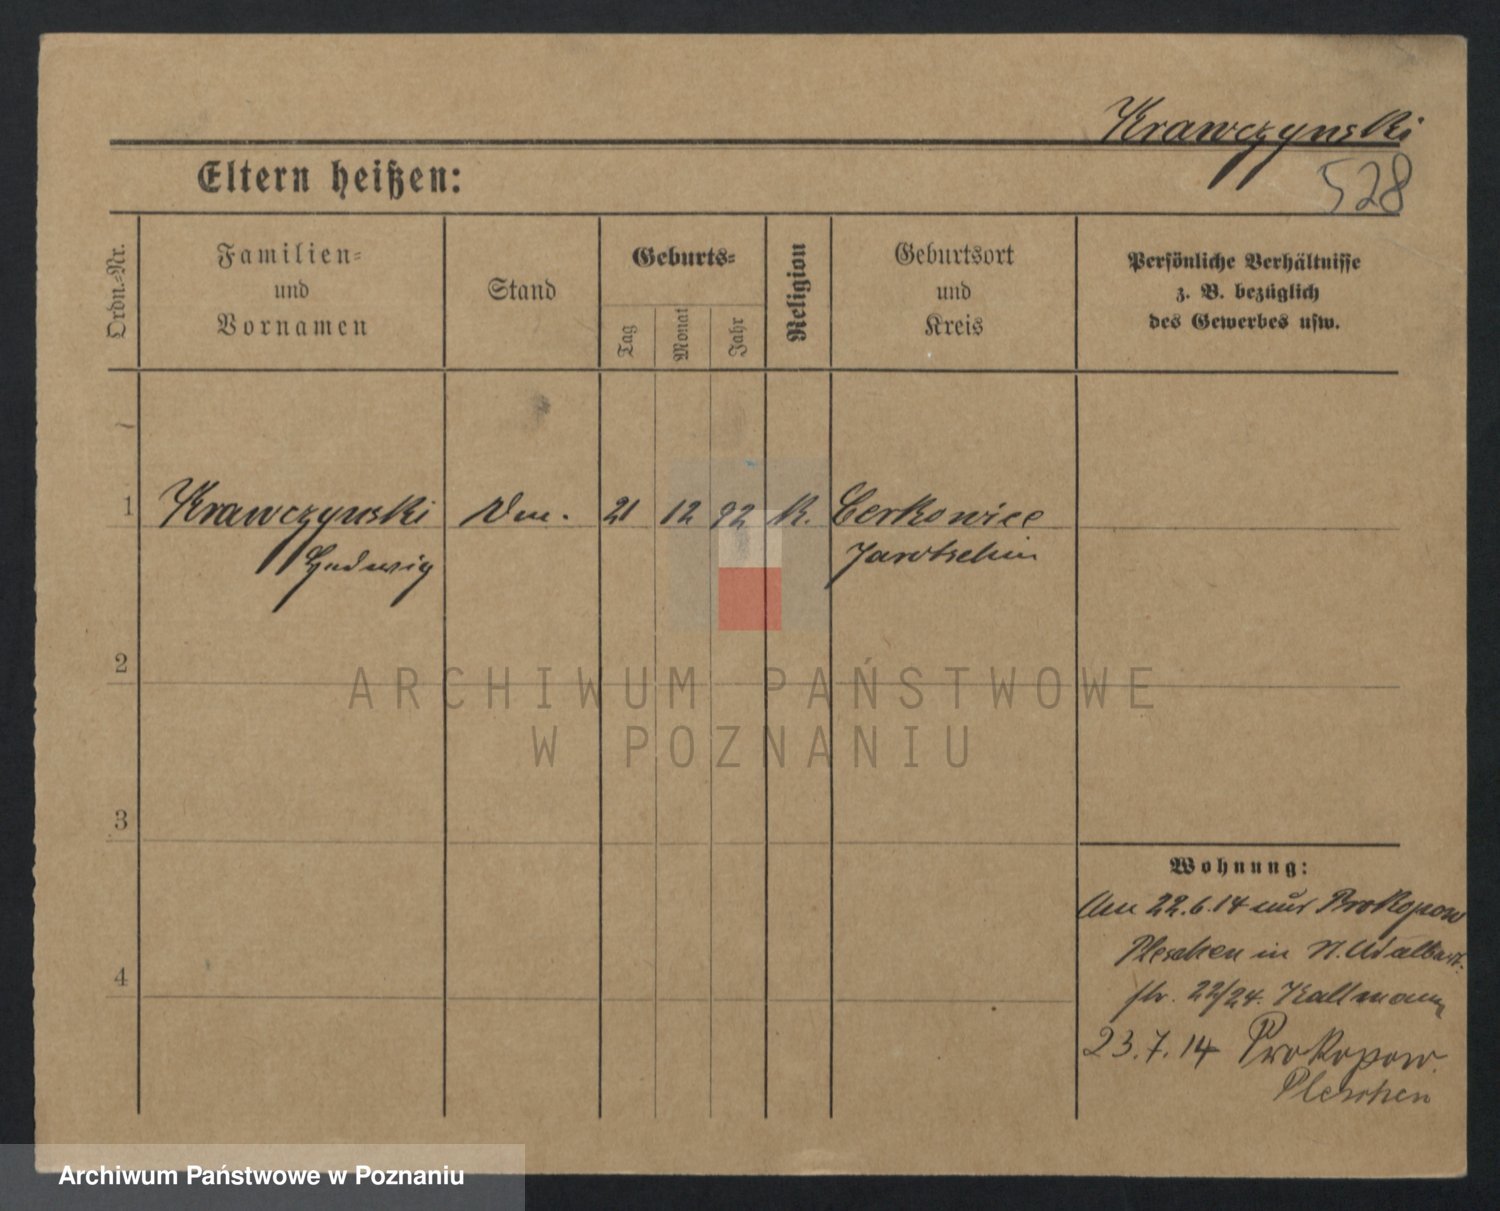 Krawczynski
528
Eltern heißen:
Ordn.-Nr.
Familien-
und
Vornamen
Stand
Geburts-
Tag
Monat
Jahr
Religion
Geburtsort
und
Kreis
Persönliche Verhältnisse
z. B. bezüglich
des Gewerbes usw.
1 Krawczynski 21 12 92 K. Cerkowice
Ludwig Jarotschin
2
3
4
Wohnung:
Am 22.6.14 aus Prokopow
Pleschen in N. Adalbert
str. 22/24. Kallmann
23.7.14 Prokopow.
Pleschen
ARCHIWUM PAŃSTWOWE
W POZNANIU
Archiwum Państwowe w Poznaniu